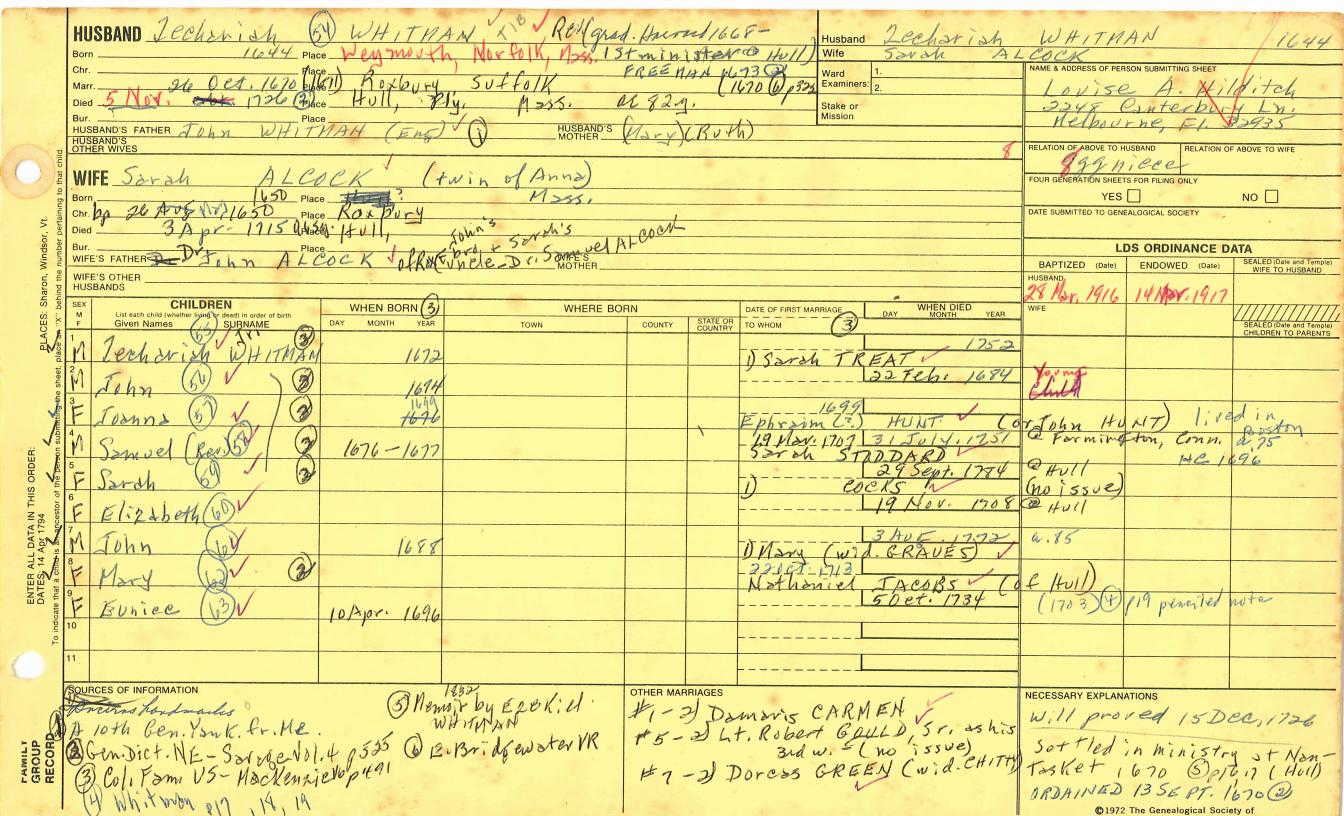 HUSBAND Zechariah (54) WHITMAN Rev grad. Harvard 1668-
Born 1644 Place Weymouth, Norfolk, Mass. 1st minister @ Hull)
Chr. Place FREEMAN 1673 (2)
Marr. 26 Oct. 1670 Place Roxbury Suffolk (1670 (6) p32
Died 5 Nov. 1726 (2) Place Hull, Ply. Mass. at 82y.
Bur. Place
HUSBAND'S FATHER John WHITMAN (Eng) (1) HUSBAND'S MOTHER (Mary) (Ruth)
HUSBAND'S OTHER WIVES 8
Husband Zechariah WHITMAN 1644
Wife Sarah ALCOCK
Ward Examiners: 1.
2.
Stake or Mission
NAME & ADDRESS OF PERSON SUBMITTING SHEET
Louise A. Hilditch
2248 Canterbury Ln.
Melbourne, Fl. 32935
RELATION OF ABOVE TO HUSBAND RELATION OF ABOVE TO WIFE
8ggniece
FOUR GENERATION SHEETS FOR FILING ONLY
YES NO
DATE SUBMITTED TO GENEALOGICAL SOCIETY
WIFE Sarah ALCOCK (twin of Anna)
Born 1650 Place ? Mass.
Chr. bp 26 1650 Place Roxbury
Died 3 Apr- 1715 Place Hull,
Bur. Place
John's bro. + Sarah's
WIFE'S FATHER Dr. John ALCOCK Uncle-Dr. Samuel ALCOCK WIFE'S MOTHER
WIFE'S OTHER HUSBANDS
LDS ORDINANCE DATA
BAPTIZED (Date) ENDOWED (Date) SEALED (Date and Temple) WIFE TO HUSBAND
HUSBAND 28 Mar. 1916 14 Mar. 1917
WIFE
SEALED (Date and Temple) CHILDREN TO PARENTS
SEX M F CHILDREN WHEN BORN (3) WHERE BORN DATE OF FIRST MARRIAGE WHEN DIED
List each child (whether living or dead) in order of birth
Given Names SURNAME DAY MONTH YEAR TOWN COUNTY STATE OR COUNTRY TO WHOM (3) DAY MONTH YEAR
1 M Zechariah (55) WHITMAN Jr. (3) 1672 1752
1) Sarah TREAT
2 M John (56) (3) 1674 22 Feb. 1684 Young Child
3 F Joanna (57) (2) 1699 1676 1699
Ephraim (?) HUNT (or John HUNT) lived in Boston
4 M Samuel (Rev) (58) (2) 1676-1677 19 Mar. 1707 31 July 1751 @ Farmington, Conn. a 75
Sarah STODDARD HC 1696
5 F Sarah (59) (2) 29 Sept. 1784 @ Hull
1) COCKS (no issue)
6 F Elizabeth (60) 19 Nov. 1708 @ Hull
7 M John (61) 1688 3 Aug. 1772 a. 85
1) Mary (wid. GRAVES)
8 F Mary (62) (2) 22 Oct. 1713
Nathaniel JACOBS (of Hull)
9 F Eunice (63) 10 Apr. 1696 5 Oct. 1734 (1703) (4) p19 penciled note
10
11
SOURCES OF INFORMATION
A 10th Gen. Yank. fr. Me.
(2) Gen. Dict. NE - Savage Vol. 4 p525
(3) Col. Fam. US - MacKenzie p491
(4) Whitman p17, 18, 19
1832
(5) Memoir by EZEKIEL WHITMAN
(6) E. Bridgewater VR
OTHER MARRIAGES
#1-2) Damaris CARMEN
#5-2) Lt. Robert GOULD, Sr. as his
3rd w. - (no issue)
#7-2) Dorcas GREEN (wid. CHITTY)
NECESSARY EXPLANATIONS
Will proved 15 Dec, 1726
Settled in ministry at Nan-
Tasket 1670 (5) p16, 17 (Hull)
ORDAINED 13 SEPT. 1670 (2)
©1972 The Genealogical Society of
FAMILY GROUP RECORD
ENTER ALL DATA IN THIS ORDER:
DATES: 14 Apr 1794
PLACES: Sharon, Windsor, Vt.
To indicate that a child is an ancestor of the person submitting the sheet, place an "X" behind the number pertaining to that child.